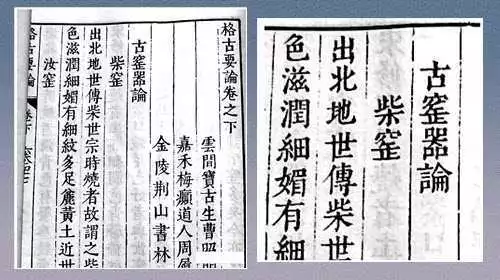 格古要論卷之下
雲間寶古生曹
嘉禾梅癲道人周履
金陵荆山書林
古窰器論
柴窰
出北地世傳柴世宗時燒者故謂之柴
色滋潤細媚有細紋多足麄黃土近世
汝窰
格古要論 卷下
古窰器論
柴窰
出北地世傳柴世
色滋潤細媚有細